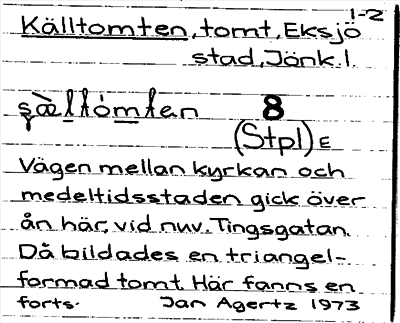 1-2
Källtomten, tomt, Eksjö
stad, Jönk. l.
8
(Stpl) E
Vägen mellan kyrkan och
medeltidsstaden gick över
ån här, vid nuv. Tingsgatan.
Då bildades en triangel-
formad tomt. Här fanns en
forts. Jan Agertz 1973